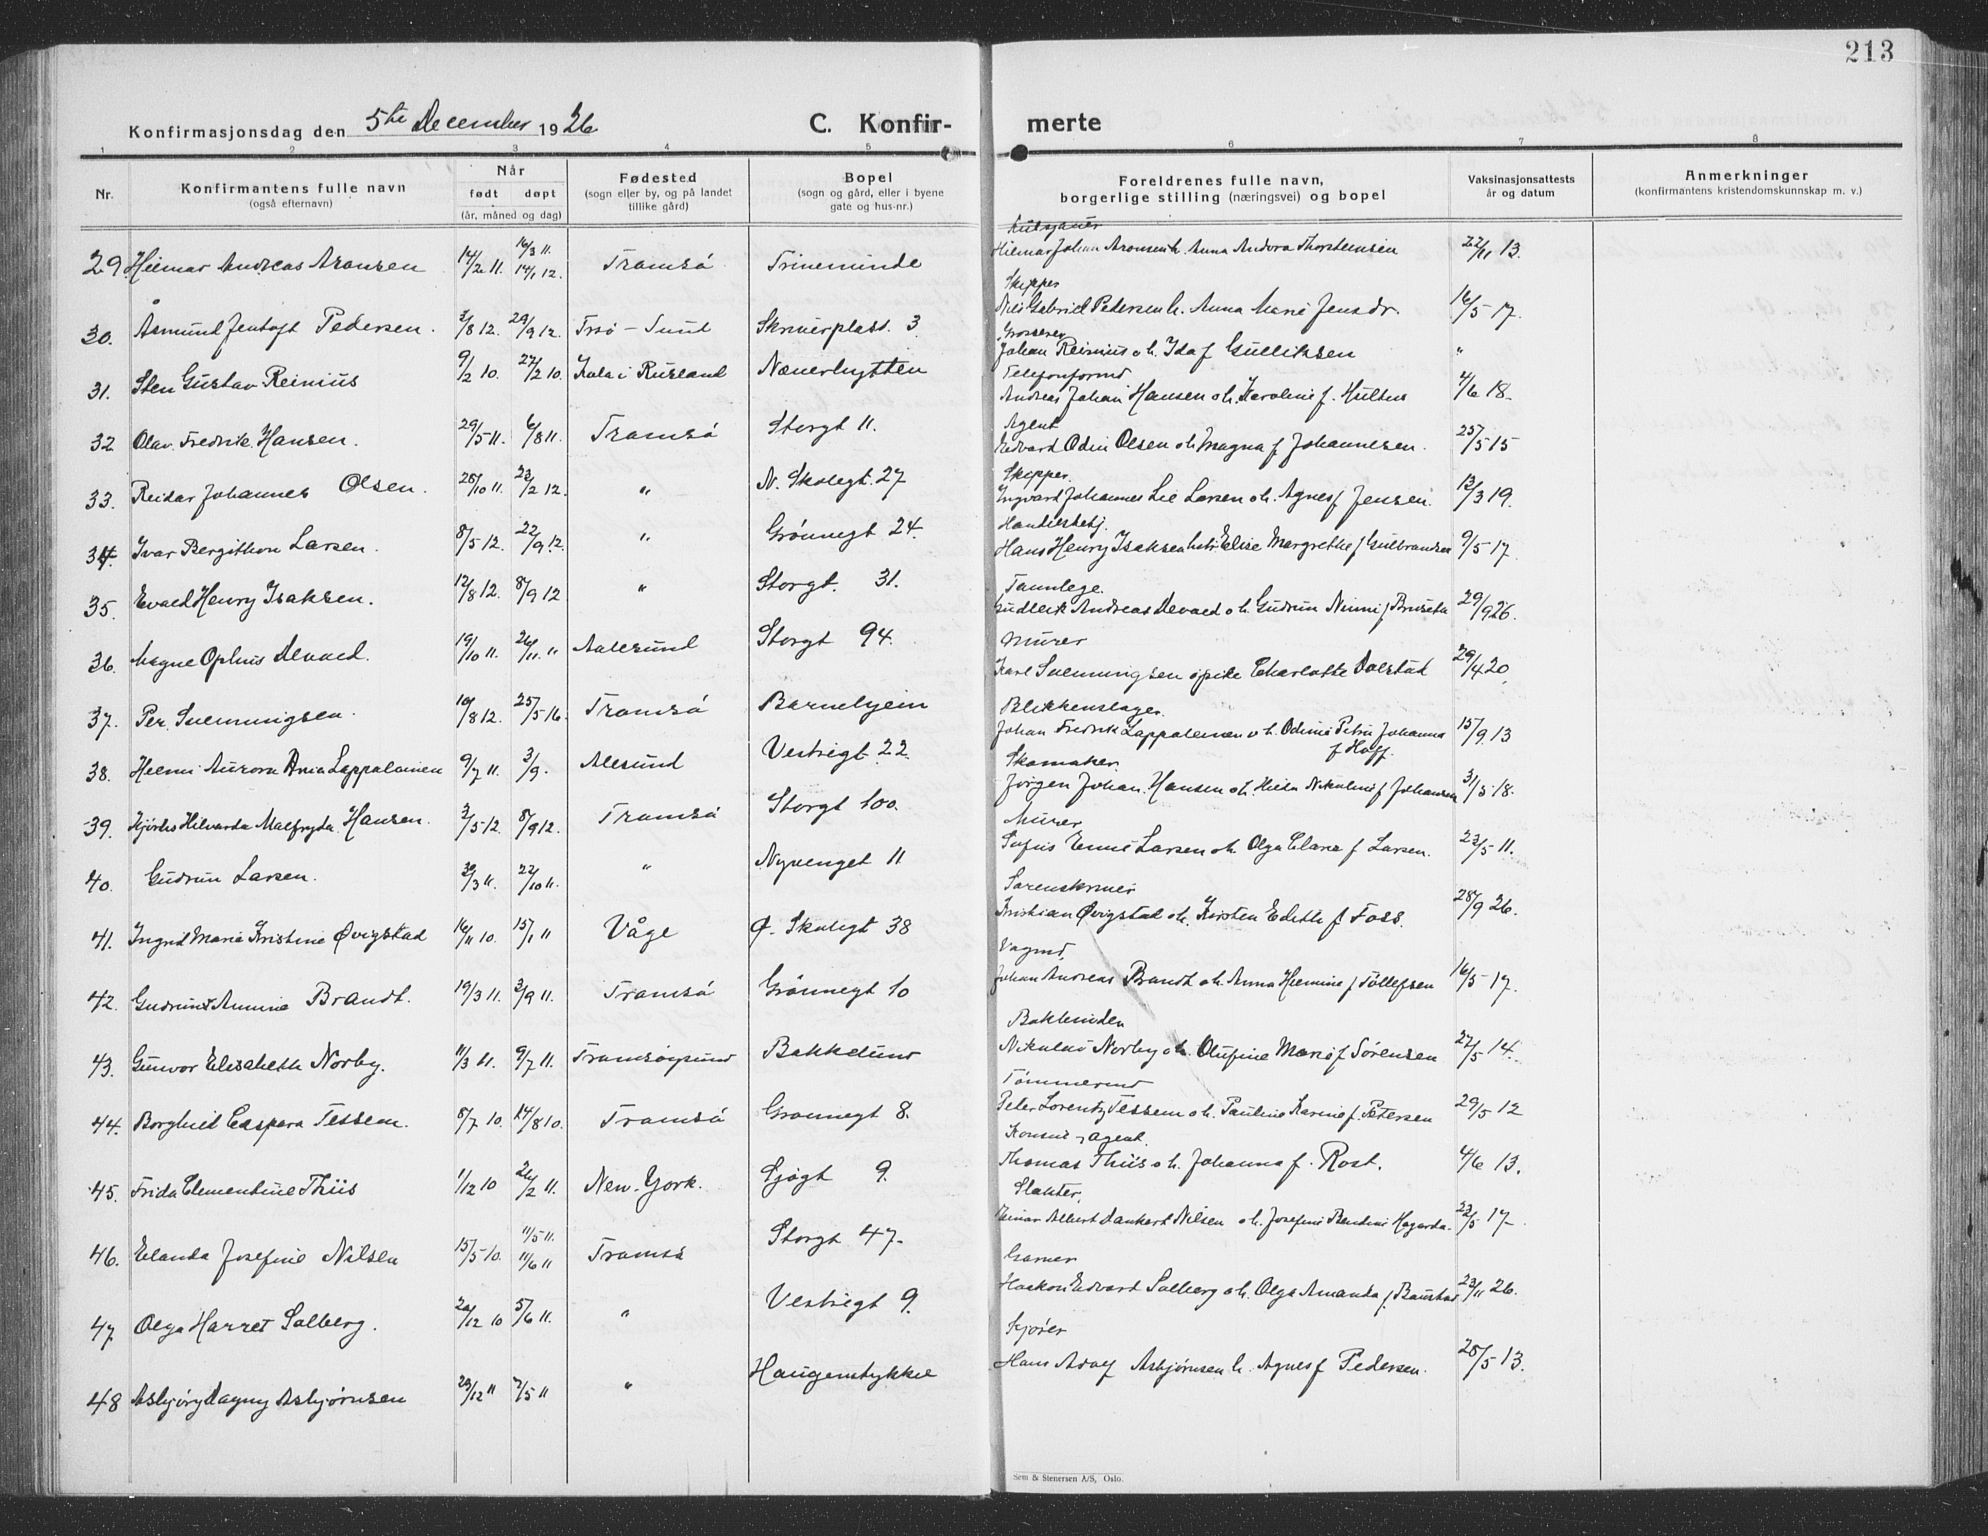 213
Konfirmasjonsdag den 5te December 1926 C. Konfir- merte
1 2 3 4 5 6 7 8
Nr. Konfirmantens fulle navn (også efternavn) Når født døpt (år, måned og dag) Fødested (sogn eller by, og på landet tillike gård) Bopel (sogn og gård, eller i byene gate og hus-nr.) Foreldrenes fulle navn, borgerlige stilling (næringsvei) og bopel Vaksinasjonsattests år og datum Anmerkninger (konfirmantens kristendomskunnskap m. v.)
29. Hilmar Andreas Aronsen 14/2 11. 16/3 11. 14/1 12. Tromsø Trineminde Hilmar Johan Aronsen h. Anna Andora Thorstensen 22/11 13.
30. Åsmund Jentoft Pedersen. 3/8 12. 29/9 12. Trsø-Sund Skriverplass. 3 Skipper Nils Gabriel Pedersen h. Anna Marie Jensdr. 16/5 17.
31. Sten Gustav Reinius 9/2 10. 27/2 10. Kola i Rusland Nænerhytten Grosserer Johan Reinius o h. Ida f Gulliksen "
32. Olav Fredrik Hansen. 29/5 11. 6/8 11. Tromsø Storgt 11. Telefonformd Andreas Johan Hansen o h. Karoline f. Hultus 4/6 18.
33. Reidar Johannes Olsen. 28/10 11. 23/2 12. " N. Skolegt. 27 Agent Edvard Odin Olsen o h Magna f Johannesen. 25/5 15
34. Ivar Bergithon Larsen. 8/5 12. 22/9 12. " Grønnegt 24. Skipper. Ingvard Johannes Lie Larsen o h. Agnes f Jensen. 13/3 19.
35. Evald Henry Isaksen. 12/8 12. 8/9 12 " Storgt. 31. Handelsbetj. Hans Henry Isaksen hstr Elise Margrethe f Gulbrandsen 9/5 17.
36. Magne Ophus Devold. 19/10 11. 26/11. " Aalesund Storgt 94. Tannlege. Gudleik Andreas Devold o h. Gudrun Ninni f Bruseth 29/9 26.
37. Per Svenningsen. 10/8 12. 25/5 16. Tromsø Barnehjem Murer Karl Svenningsen o pike Charlotte Dolstad 29/4 20.
38. Helmi Aurora Ania Lappalainen 9/7 11. 3/9. Alesund Vestregt 22 Blikkenslager. Johan Fredrik Lappalainen o h. Odine Petra Johanna f Hoff. 15/9 13
39. Hjørdis Hilvarda Malfryda Hansen. 3/5 12. 8/9 12. Tromsø Storgt 100. Skomaker. Jørgen Johan Hansen o h. Hilda Nikoline f Johansen 31/5 18.
40. Gudrun Larsen. 30/3 11. 22/10 11. " Nyvenget 11 Murer Sofus Emil Larsen o h. Olga Clara f Larsen. 23/5 11.
41. Ingrid Marie Kristine Øvigstad 16/11 10. 15/1 11 Våge Ø. Skolegt 38 Sorenskriver Kristian Øvigstad o h. Kirsten Edith f Foss. 28/9 26.
42. Gudrun Annine Brandt. 19/3 11. 3/9 11. Tromsø Grønnegt 10 Vognmd. Johan Andreas Brandt o h Anna Helmine f Tollefsen 16/5 17.
43. Gunvor Elisabeth Norby. 11/3 11. 9/7 11. Tromsøysund Bakkelund Nikolai Norby o h. Olufine Marie f Sørensen 27/5 14.
44. Borghild Caspara Tessem. 8/7 10. 14/8 10. Tromsø Grønnegt 8. Tømmermd Peter Lorentz Tessem o h. Pauline Karine f. Petersen 29/5 12
45. Frida Clementine Thiis 1/12 10 26/2 11. New-York. Sjøgt 9. Konsul og agent. Thomas Thiis o h. Johanna f. Rost. 4/6 13.
46. Elanda Josefine Nilsen 15/5 10. 11/5 11. 11/6 11 Tromsø Storgt 47. Slakter. Einar Albert Dankert Nilsen o h. Josefine Bendine Hagerda. 23/5 17.
47. Olga Harret Solberg. 20/12 10 5/6 11. " Vestregt 9. Garver Haakon Edvard Solberg o h. Olga Amanda f. Baustad 23/11 26.
48 Asbjørg Dagny Asbjørnsen 29/12 11 7/5 11 " Haugenstykke Kjører Hans Adolf Asbjørnsen h. Agnes f Pedersen. 28/5 13.
Sem & Stenersen A/S, Oslo.